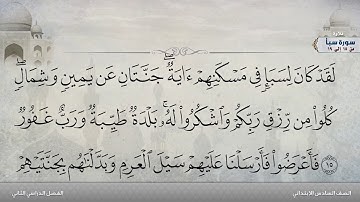 تلاوة
سورة سبأ
من ١٥ إلى ١٩
لَقَدْ كَانَ لِسَبَإٍ فِي مَسْكَنِهِمْ ءَايَةٌ ۖ جَنَّتَانِ عَن يَمِينٍ وَشِمَالٍ ۖ
كُلُوا۟ مِن رِّزْقِ رَبِّكُمْ وَٱشْكُرُوا۟ لَهُۥ ۚ بَلْدَةٌ طَيِّبَةٌ وَرَبٌّ غَفُورٌ
١٥ فَأَعْرَضُوا۟ فَأَرْسَلْنَا عَلَيْهِمْ سَيْلَ ٱلْعَرِمِ وَبَدَّلْنَٰهُم بِجَنَّتَيْهِمْ
الصف السادس الابتدائي
الفصل الدراسي الثاني